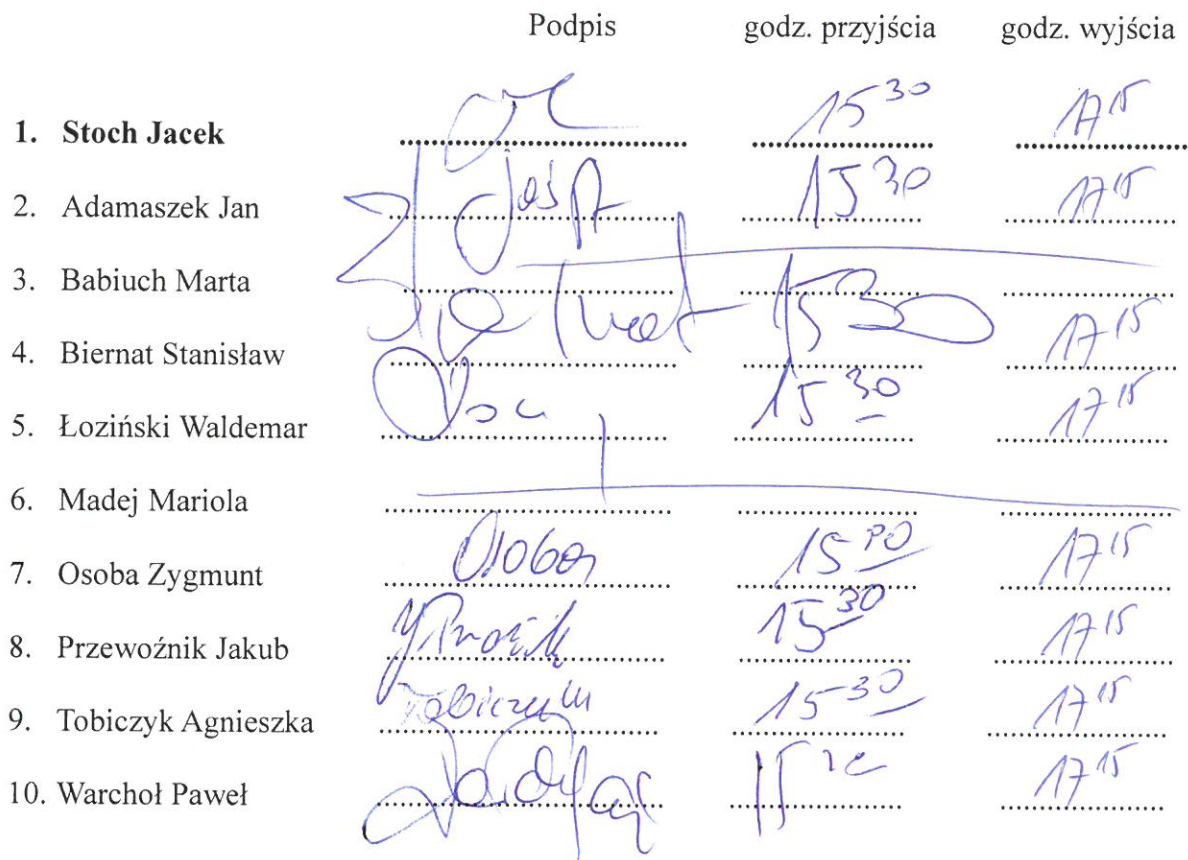 Podpis godz. przyjścia godz. wyjścia
1. Stoch Jacek 15 30 17 15
2. Adamaszek Jan 15 30 17 15
3. Babiuch Marta
4. Biernat Stanisław 15 30 17 15
5. Łoziński Waldemar 15 30 17 15
6. Madej Mariola
7. Osoba Zygmunt Osoba 15 30 17 15
8. Przewoźnik Jakub 15 30 17 15
9. Tobiczyk Agnieszka Tobiczyk 15 30 17 15
10. Warchoł Paweł 15 17 15